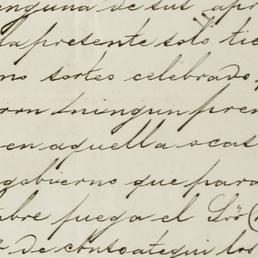 ninguna de sus apr
la presente solo tie
no sortes celebrado
ningun pre
en aquella ocas
gobierno que para
bre fuega el Sor
de los